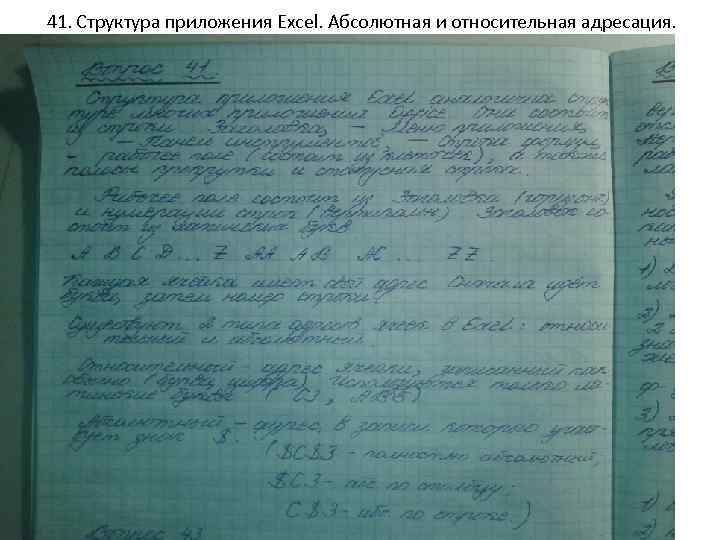 41. Структура приложения Excel. Абсолютная и относительная адресация.
Вопрос 41
Структура приложения Excel аналогична струк-
туре многих приложений Office. Она состоит
из строки Заголовка, — Меню приложения,
— Панели инструментов, — Строки формул,
- рабочее поле (состоит из клеточек), а также
полосы прокрутки и статусная строка.
Рабочее поле состоит из Заголовка (горизонт)
и нумерации строк (вертикально) Заголовок со-
стоит из латинских букв
A B C D ... Z AA AB AC ... ZZ.
Каждая ячейка имеет свой адрес. Сначала идёт
буква, затем номер строки.
Существуют 2 типа адресов ячеек в Excel: относи-
тельный и абсолютный.
Относительный - адрес ячейки, записанный
(буква, цифра) Используются только ла-
тинские буквы (C3,
Абсолютный — адрес, в записи которого участ-
вует знак $.
($C$3 - полностью абсолютный,
$C3 - абс по столбцу;
C$3 - абс. по строке.)
Вопрос 43